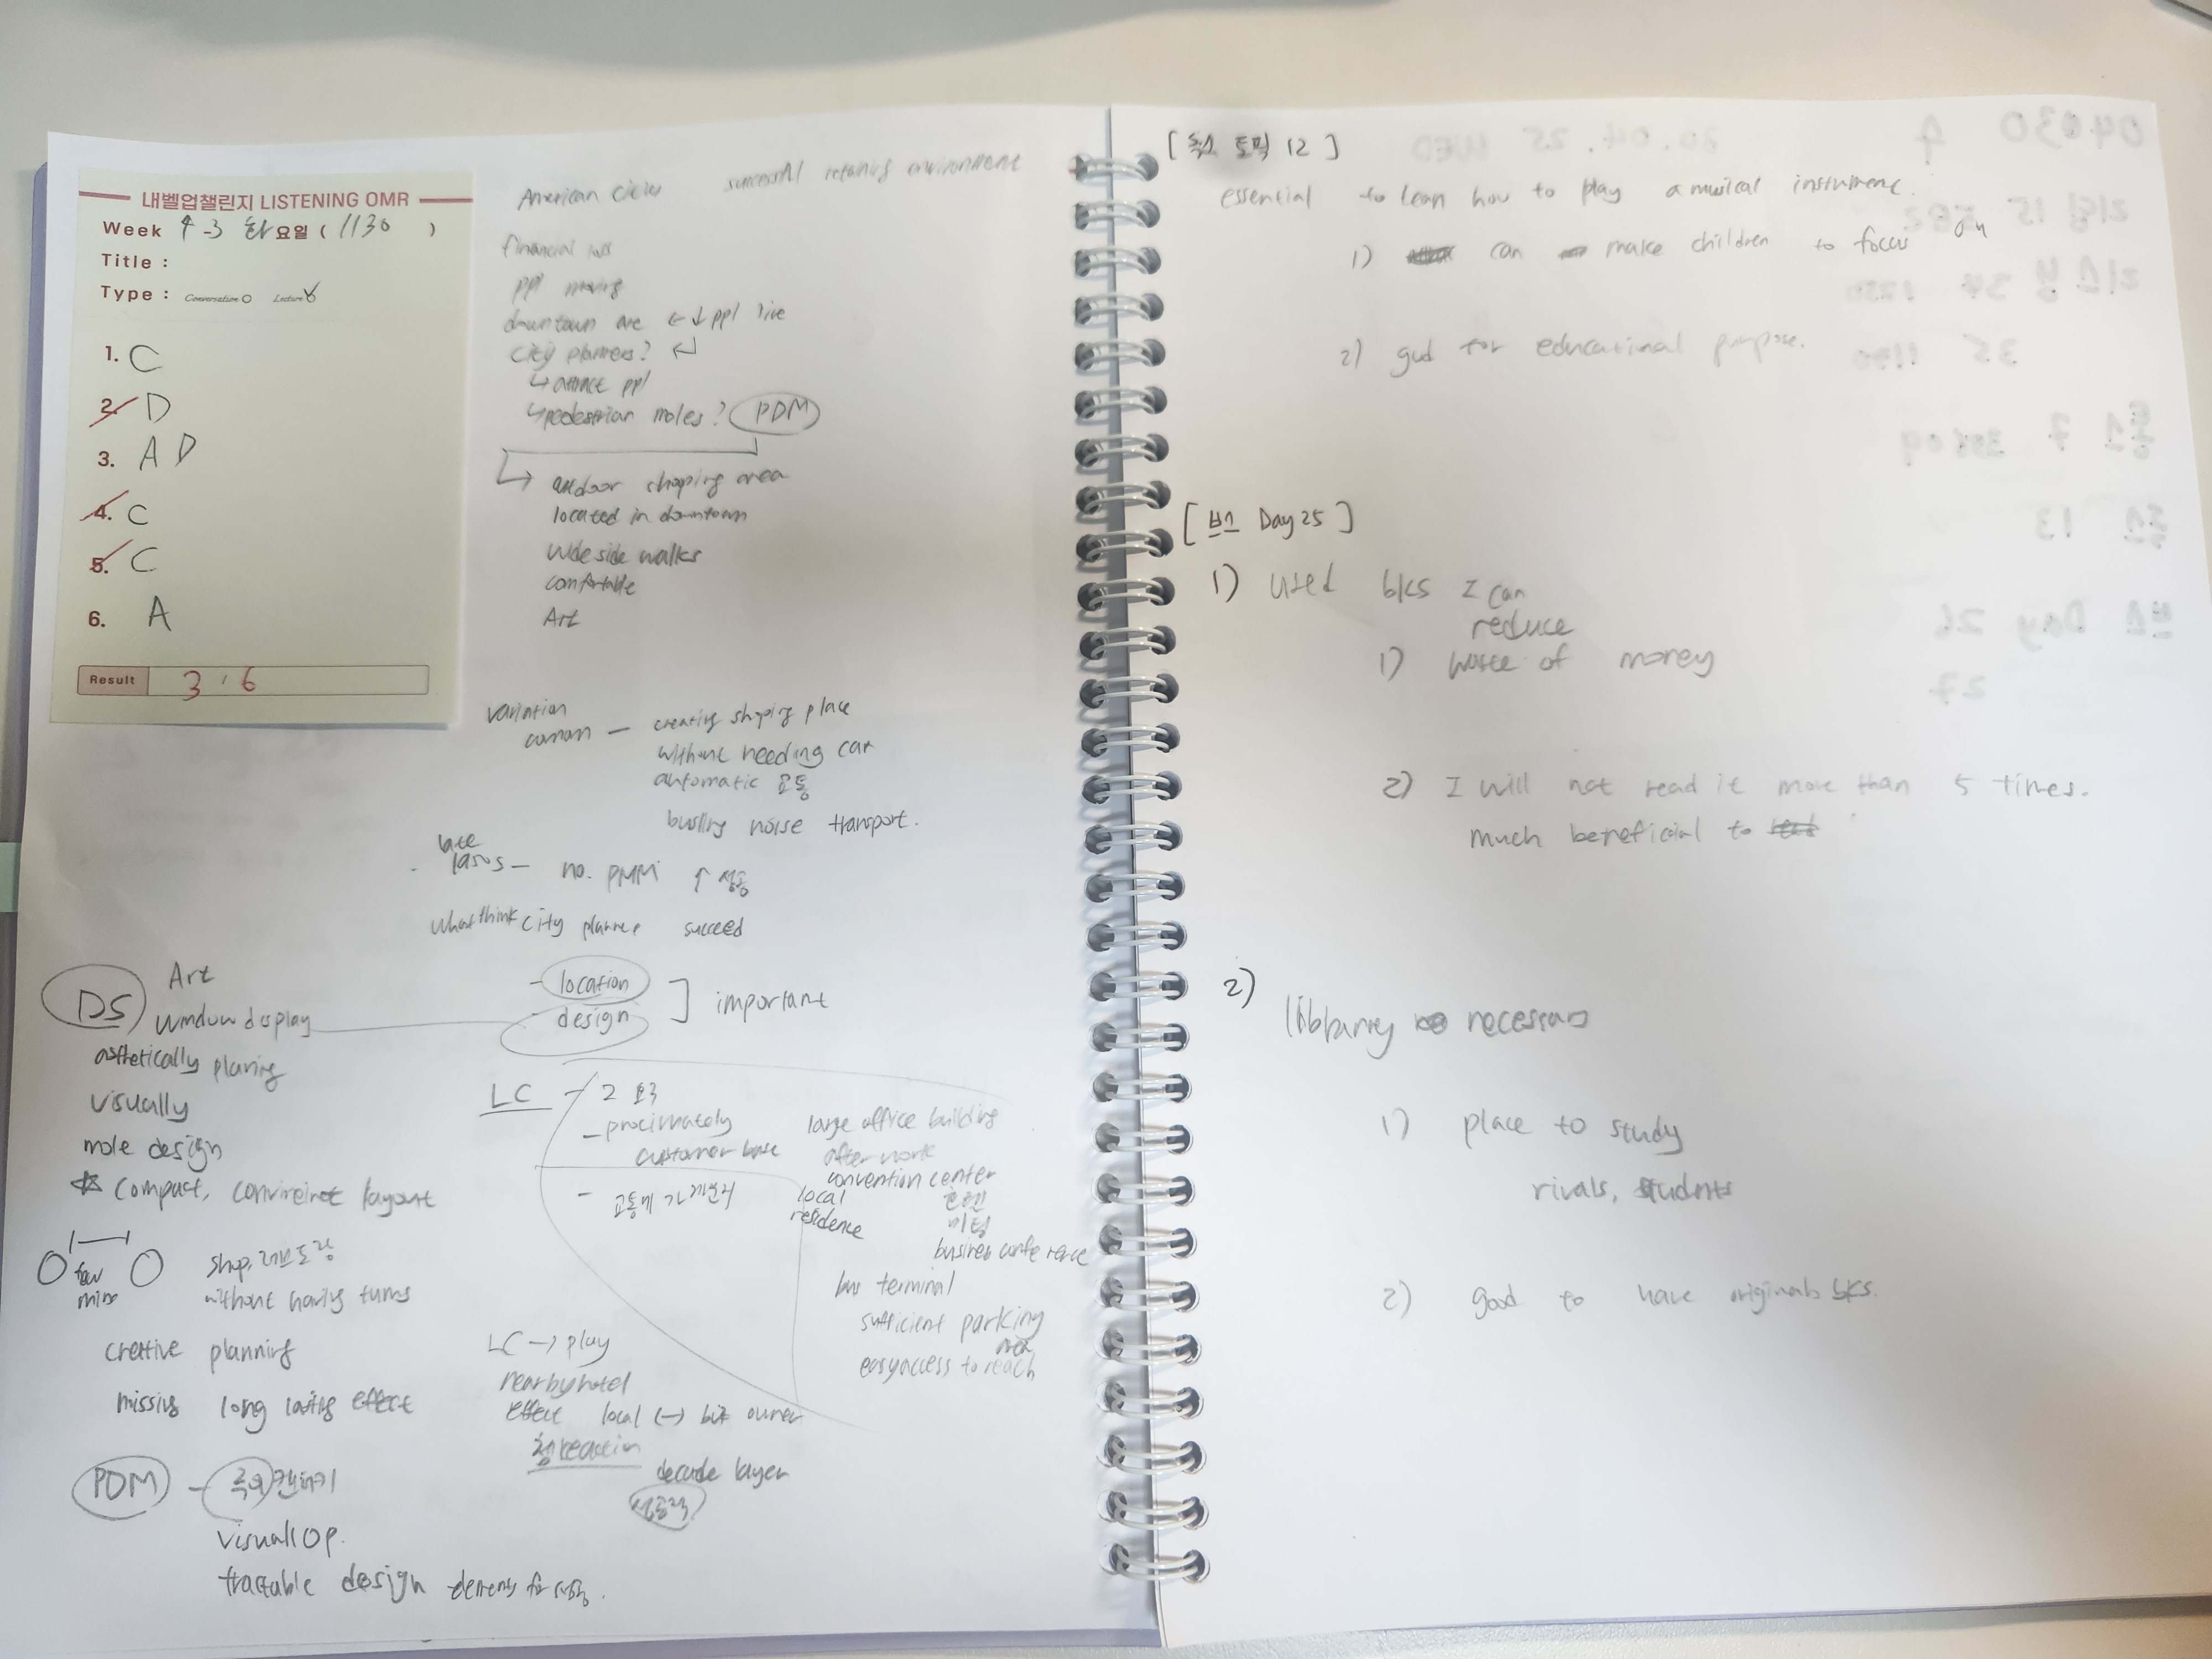 내벨업챌린지 LISTENING OMR
Week 4-3 화요일 ( 1130 )
Title :
Type : Conversation Lecture
1. C
2. D
3. A D
4. C
5. C
6. A
Result 3 / 6
American cities successful retaining environment
financial loss
ppl moving
downtown are ← ↓ ppl live
city planners?
↳ attract ppl
↳ pedestrian moles? PDM
→ outdoor shoping area
located in downtown
Wide side walks
comfortable
Art
variation
common — creating shoping place
without needing car
automatic 교통
noise transport.
late
1950s — no. PMM ↑ 성공
what think city planner succeed
- location
- design ] important
DS
Art
window display
visually
mole design
☆ compact, layout
few
mins
shop, 레스토랑
without having turns
creative planning
missing long lasting effect
PDM —
visual op.
design
LC - 2 요구
- proximately
customer base
large office building
after work
convention center
local
residence
호텔
미팅
business conference
bus terminal
sufficient parking
area
easy access to reach
LC → play
nearby hotel
effect local owner
reaction
decade layer
성공작
[ 독스 토픽 12 ]
essential to lean how to play a musical instrument.
1) can make children to focus on
2) gud for educational purpose.
[ 브스 Day 25 ]
1) used bks I can
reduce
1) waste of money
2) I will not read it more than 5 times.
much beneficial to
2)
libbarry necessary
1) place to study
rivals, students
2) good to have originals bks.